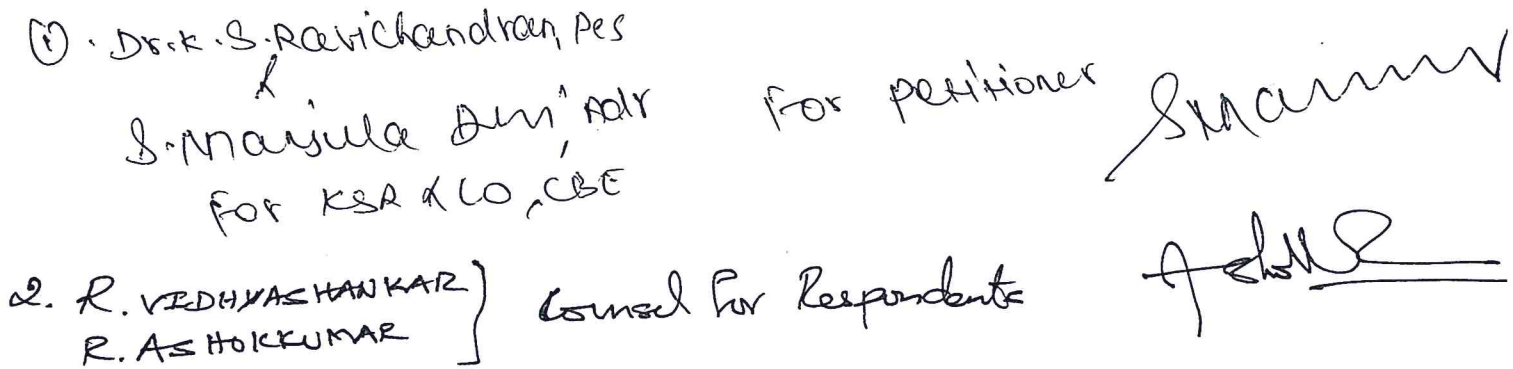 ①. Dr.K.S.Ravichandran, PCS
&
S.Manjula Devi, Adv For Petitioner
For KSR & CO, CBE
2. R. VIDHYASHANKAR
R. ASHOKKUMAR } Counsel for Respondents